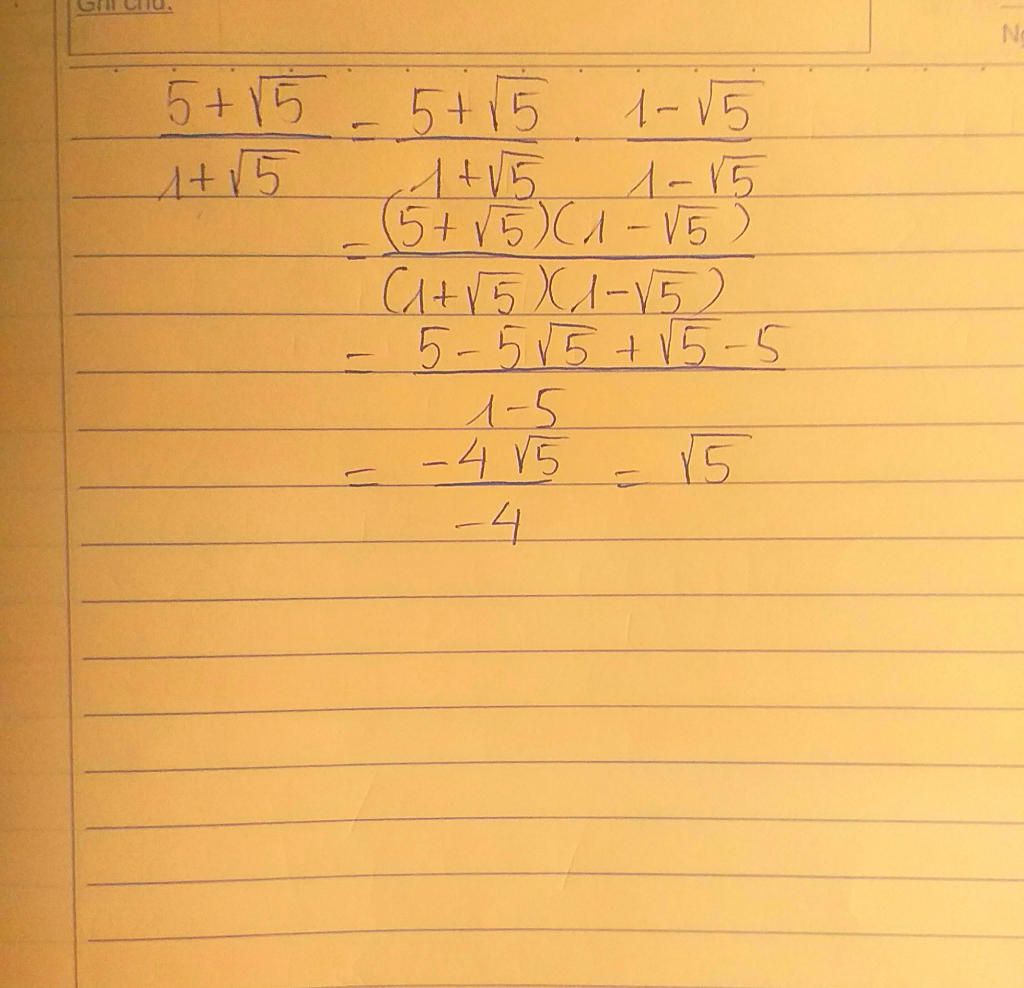 Ghi chú:
(5+√5)/(1+√5) = (5+√5)/(1+√5) . (1-√5)/(1-√5)
= (5+√5)(1-√5)/(1+√5)(1-√5)
= (5-5√5+√5-5)/(1-5)
= (-4√5)/(-4) = √5